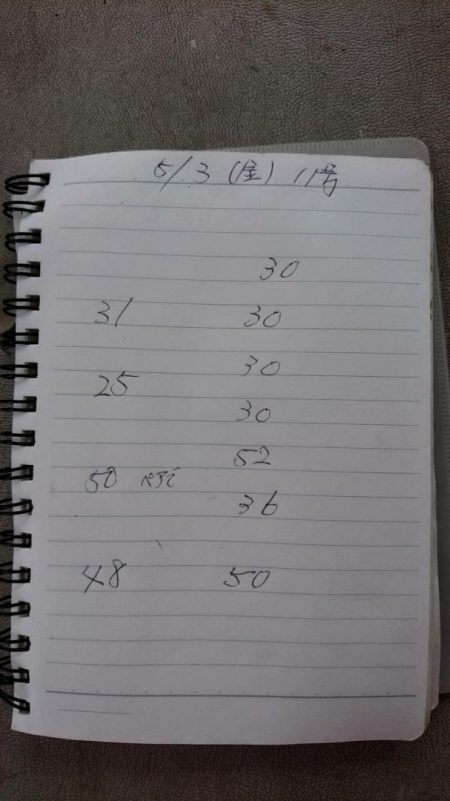 5/3 (金) 11号
30
31 30
30
25
30
52
50
36
48 50